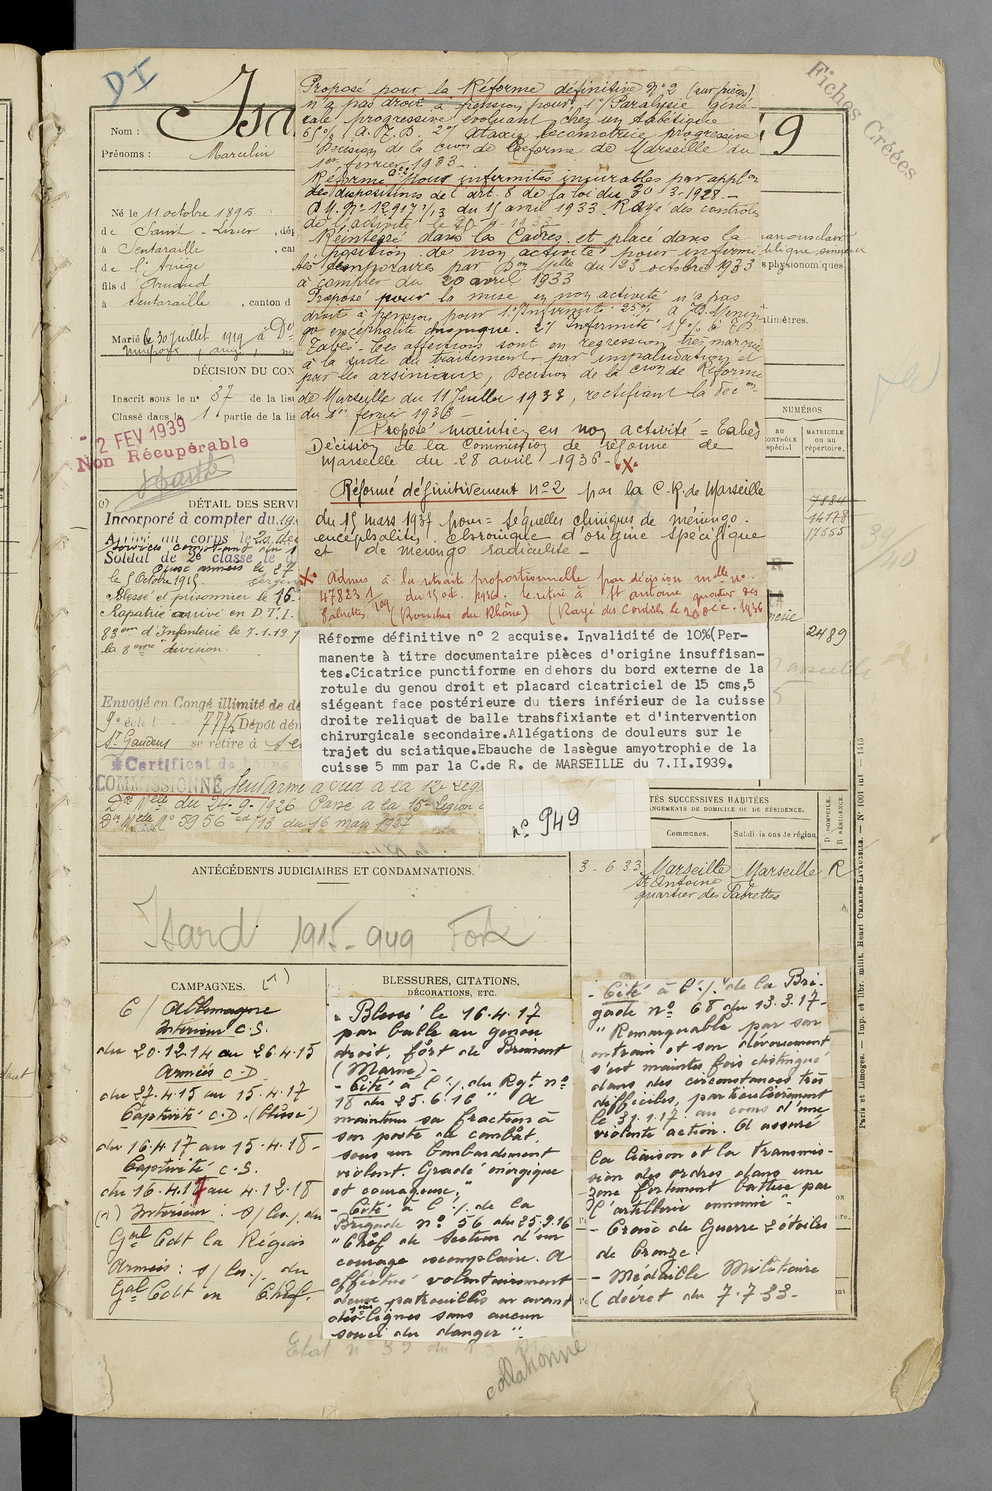 DI
Fiches Créées
Nom :
9
Prénoms : Marcelin
Né le 11 octobre 1895
de Saint-Lizier
à Sentaraille
de l'Ariège
fils d' Arnaud
à Sentaraille , canton d
Marié le 30 juillet 1919 à
DÉCISION DU CON
Inscrit sous le n° 37 de la lis
Classé dans la 1 partie de la lis
2 FEV 1939
Non Récupérable
DÉTAIL DES SERVI
Incorporé à compter du
Arrivé au corps le
Soldat de 2e classe le
le 5 Octobre 1915.
Blessé et prisonnier le 16
Rapatrié arrivé en D.T.I.
83ème d'Infanterie le 7.1.19
la 8ème division.
Envoyé en Congé illimité de dé
9e éch. 777 Dépôt dém
St Gaudens se retire à
Certificat de bonne
COMMISSIONNÉ Gendarme à pied à la 12e Légi
Don Melle du 24-9-1926 Passe à la 15e Légion
Don Melle No 5956 du 16 mars 1927
Proposé pour la Réforme définitive n°2 (sur pièces)
n'a pas droit à pension pour, 1°/Paralysie géné-
rale progressive évoluant chez un tabétique
65% (A.R.B. 2°/ Ataxie locomotrice progressive
Décision de la Cion de Réforme de Marseille du
1er février 1933
Réformé pour infirmités incurables par applon
des dispositions de l'art. 8 de la loi du 30-3-1928.-
D.M. N° 12917 1/13 du 15 avril 1933 Rayé des contrôles
de l'activité le 20-4-1933
Réintégré dans les Cadres et placé dans la
position de non activité pour infirmi-
tés temporaires par Don Melle du 23 octobre 1933
à compter du 20 avril 1933
Proposé pour la mise en non activité n'a pas
droit à pension pour 1° Infirmité 25%
go encéphalite chronique. 2°/ Infirmité
Tabès - Les affections sont en régression très marquée
à la suite du traitement par impaludation et
par les arsenicaux, Décision de la Cion de Réforme
de Marseille du 11 Juillet 1933, rectifiant la décon
du 1er février 1933 -
Proposé maintien en non activité = Tabès
Décision de la Commission de réforme de
Marseille du 28 avril 1936 -
Réformé définitivement n°2 par la C.R. de Marseille
du 15 mars 1937 pour = Séquelles cliniques de méningo-
encéphalite chronique d'origine spécifique
et de méningo radiculite -
Admis à la retraite proportionnelle par décision melle n°
47823 1/ du 15 oct. 1936. se retire à St Antoine quartier des
Fabrettes (Bouches du Rhône) (Rayé des Contrôles le 20 Dec. 1936
Réforme définitive n° 2 acquise. Invalidité de 10%(Per-
manente à titre documentaire pièces d'origine insuffisan-
tes.Cicatrice punctiforme en dehors du bord externe de la
rotule du genou droit et placard cicatriciel de 15 cms,5
siégeant face postérieure du tiers inférieur de la cuisse
droite reliquat de balle transfixiante et d'intervention
chirurgicale secondaire.Allégations de douleurs sur le
trajet du sciatique.Ebauche de lasègue amyotrophie de la
cuisse 5 mm par la C.de R. de MARSEILLE du 7.II.I939.
n° 949
s physionomiques
timètres.
NUMÉROS
AU CONTRÔLE spécial
MATRICULE ou au répertoire.
7884
14178
17555
2489
TÉS SUCCESSIVES HABITÉES
NGEMENTS DE DOMICILE OU DE RÉSIDENCE.
Communes.
Subdivisions de région
D. DOMICILE.
R. RÉSIDENCE
3-6-33 Marseille Marseille R
St Antoine
quartier des Fabrettes
Paris et Limoges. — Imp. et libr. milit. Henri CHARLES-LAVAUZELLE. — N° 1001
ANTÉCÉDENTS JUDICIAIRES ET CONDAMNATIONS.
Isard 1915-949 Foix
CAMPAGNES. (1)
C/ Allemagne
Intérieur C.S.
du 20.12.14 au 26.4.15
Armées C.D
du 27.4.15 au 15.4.17
Captivité C.D. (blessé)
du 16.4.17 au 15.4.18-
Captivité C.S.
du 16.4.18 au 4.12.18
(1) Intérieur : s/ les/. du
Gal Cdt la Région
Armées : s/ les/. du
Gal Cdt en Chef
BLESSURES, CITATIONS,
DÉCORATIONS, ETC.
- Blessé le 16.4.17
par balle au genou
droit, fort de Briment
(Marne)-
- Cité à l'/. du Rgt n°
18 du 25.6.16 " A
maintenu sa fraction à
son poste de combat,
sous un bombardement
violent. Gradé énergique
et courageux."
- Cité à l'/. de la
Brigade n° 56 du 25.9.16
" Chef de section d'un
courage exemplaire. A
effectué volontairement
deux patrouilles en avant
des lignes sans aucun
souci du danger ".
- Cité à l'/. de la Bri-
gade n° 68 du 13.3.17-
" Remarquable par son
entrain et son dévouement
s'est maintes fois distingué
dans des circonstances très
difficiles, particulièrement
le 31.1.17 au cours d'une
violente action. A assuré
la liaison et la transmis-
sion des ordres dans une
zone fortement battue par
l'artillerie ennemie ".
- Croix de Guerre 2 étoiles
de bronze.
- Médaille Militaire
(décret du 7.7.33-
Etat n° 39 du
collationné